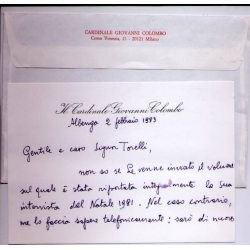 CARDINALE GIOVANNI COLOMBO
Corso Venezia, 11 - 20121 Milano
Il Cardinale Giovanni Colombo
Albenga 2 febbraio 1983
Gentile e caro Signor Torelli,
non so se Le venne inviato il volume
sul quale è stata riportata integralmente la Sua
intervista del Natale 1981. Nel caso contrario,
me lo faccia sapere telefonicamente; sarò di nuovo